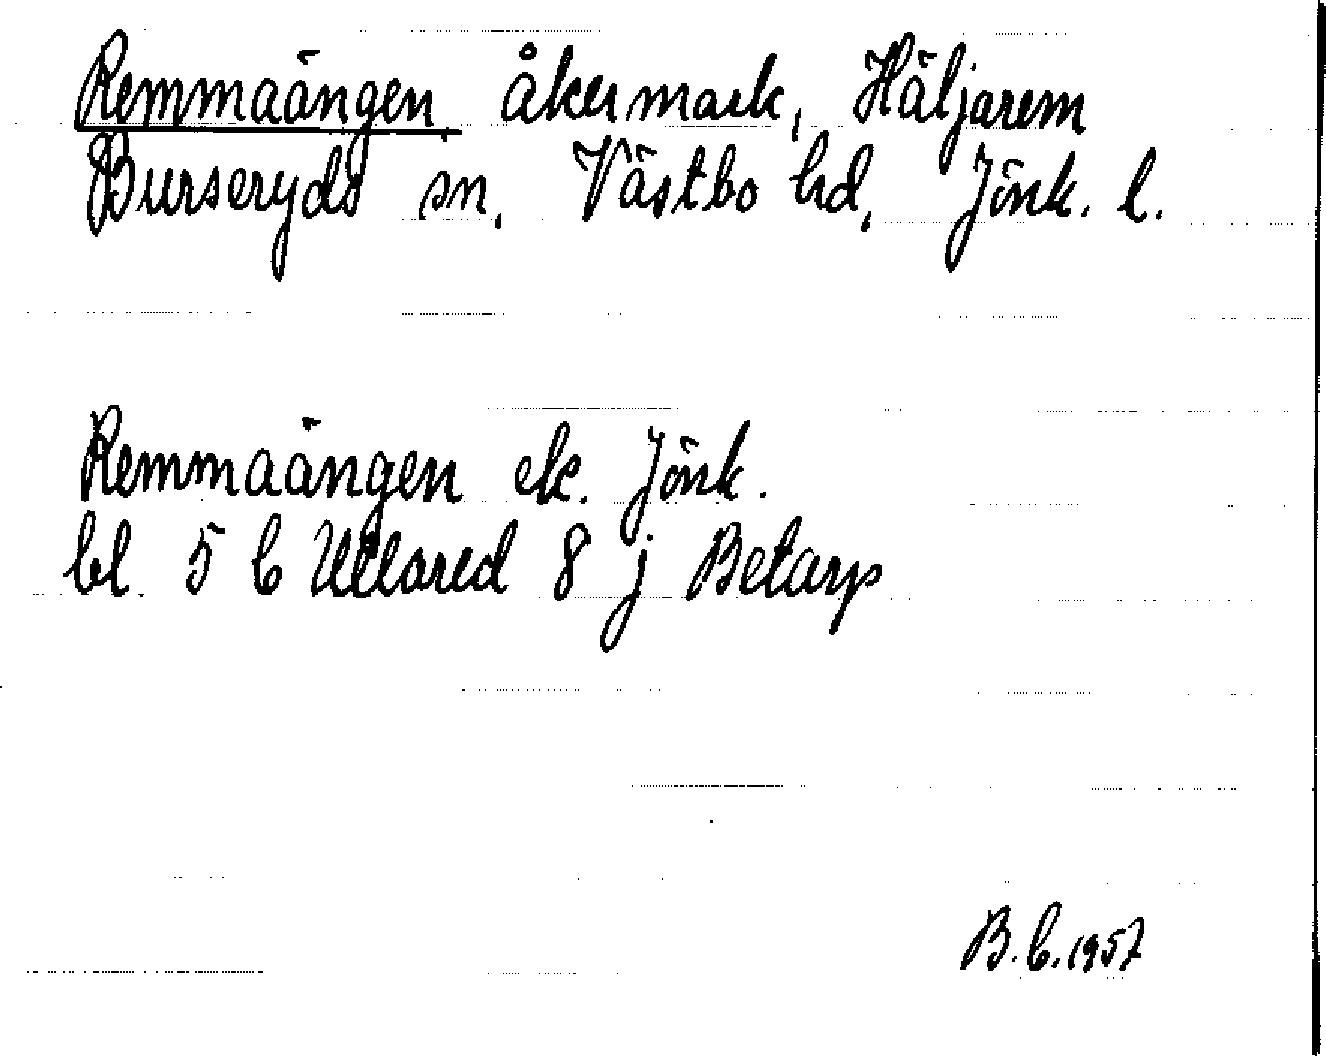 Remmaängen, åkermark, Häljarem
Burseryds sn, Västbo hd, Jönk. l.
Remmaängen ek. Jönk.
bl. 5 C Ullared 8 j Betarp
B.C. 1957